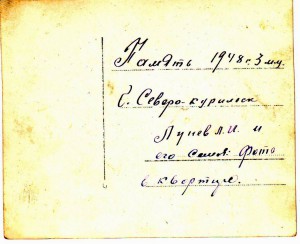 Память 1948 г. 3 м-ц.
г. Северо-курильск
Лунев Л.И. и
его семья. Фото
в квартире.